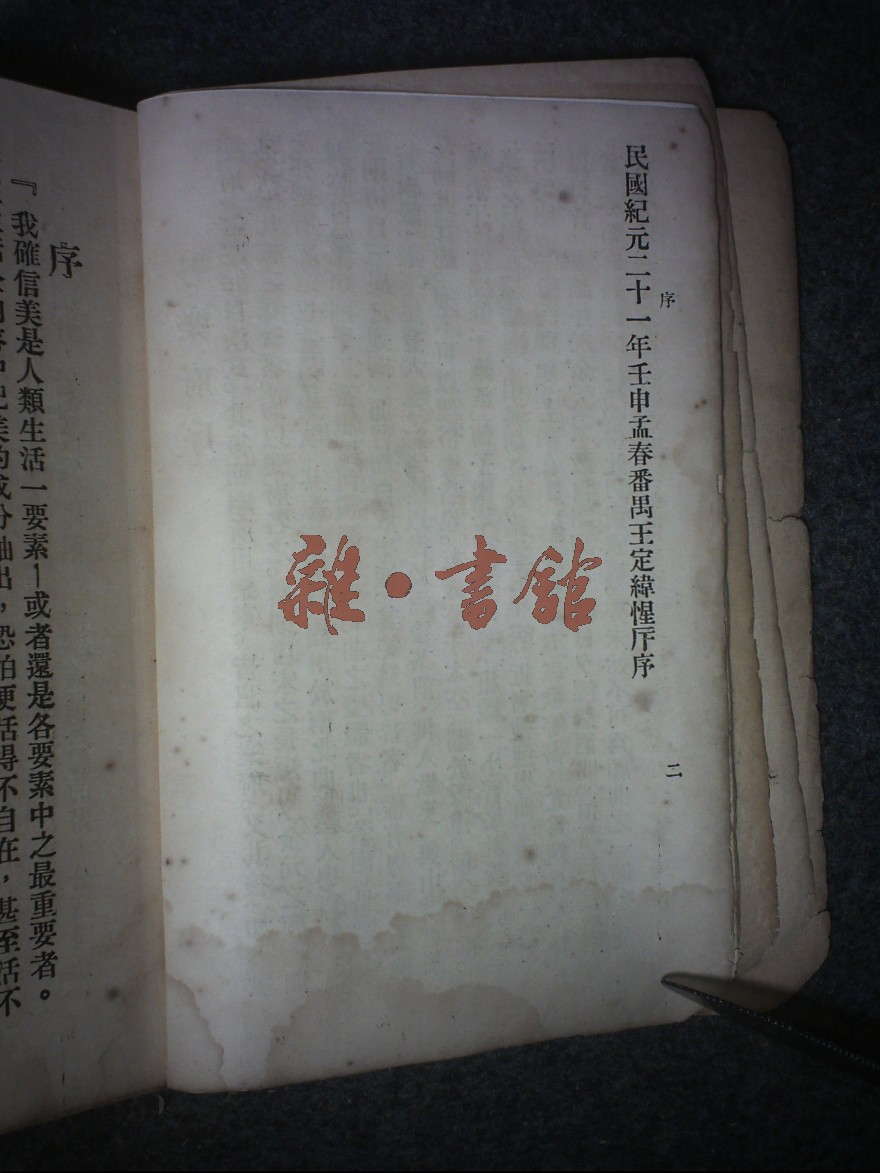 序
民國紀元二十一年壬申孟春番禺王定緯惺厈序
二
雜·書館
序
『我確信美是人類生活一要素—或者還是各要素中之最重要者。
內容中把美的成分抽出，恐怕便活得不自在，甚至活不